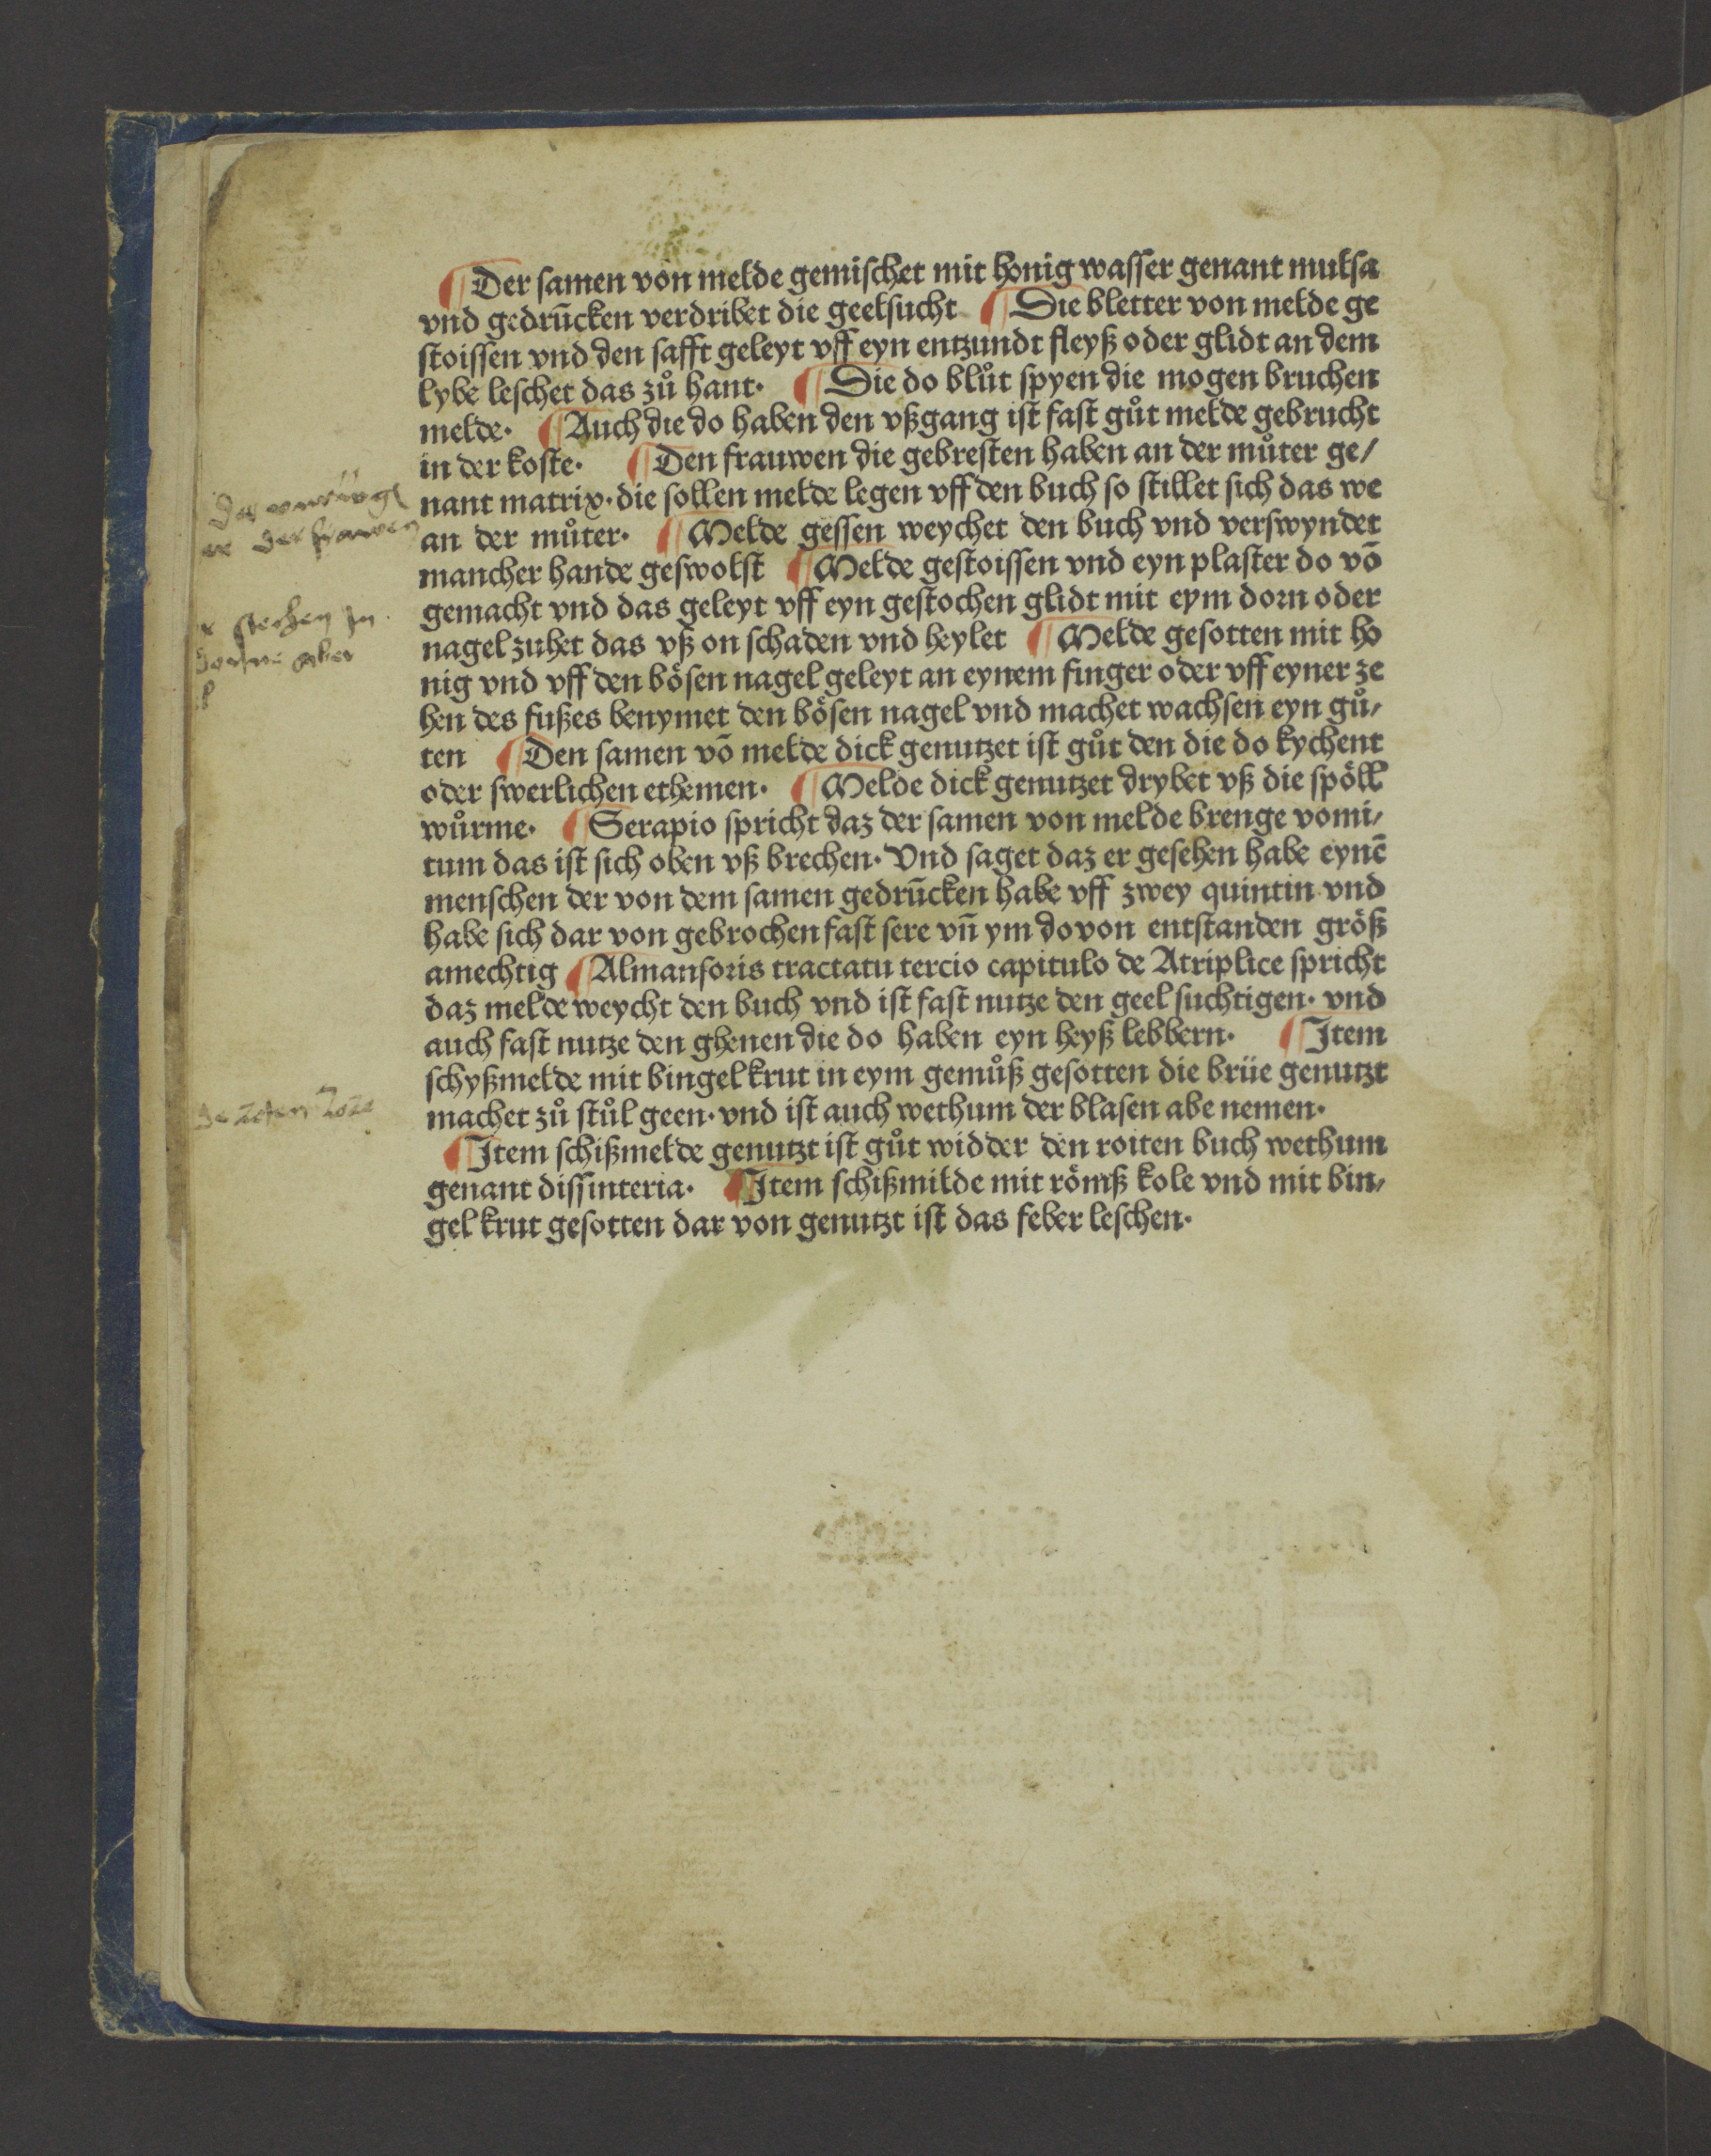 ¶ Der samen von melde gemischet mit honig wasser genant mulsa
vnd gedrūcken verdribet die geelsucht ¶ Die bletter von melde ge
stoissen vnd den safft geleyt vff eyn entzundt fleyß oder glidt an dem
lybe leschet das zů hant· ¶ Die do blůt spyen die mogen bruchen
melde· ¶ Auch die do haben den vßgang ist fast gůt melde gebrucht
in der koste· ¶ Den frauwen die gebresten haben an der můter ge/
nant matrix· die sollen melde legen vff den buch so stillet sich das we
an der můter· ¶ Melde gessen weychet den buch vnd verswyndet
mancher hande geswolst ¶ Melde gestoissen vnd eyn plaster do vō
gemacht vnd das geleyt vff eyn gestochen glidt mit eym dorn oder
nagel zuhet das vß on schaden vnd heylet ¶ Melde gesotten mit ho
nig vnd vff den bösen nagel geleyt an eynem finger oder vff eyner ze
hen des fußes benymet den bösen nagel vnd machet wachsen eyn gů/
ten ¶ Den samen vō melde dick genutzet ist gůt den die do kychent
oder swerlichen ethemen· ¶ Melde dick genutzet drybet vß die spöll
wůrme· ¶ Serapio spricht daz der samen von melde brenge vomi/
tum das ist sich oben vß brechen· Vnd saget daz er gesehen habe eynē
menschen der von dem samen gedrūcken habe vff zwey quintin vnd
habe sich dar von gebrochen fast sere vn̄ ym dovon entstanden größ
amechtig ¶ Almansoris tractatu tercio capitulo de Atriplice spricht
daz melde weycht den buch vnd ist fast nutze den geel suchtigen· vnd
auch fast nutze den ghenen die do haben eyn heyß lebbern· ¶ Item
schyßmelde mit bingel krut in eym gemůß gesotten die brüe genutzt
machet zů stůl geen· vnd ist auch wethum der blasen abe nemen·
¶ Item schißmelde genutzt ist gůt widder den roiten buch wethum
genant dissinteria· ¶ Item schißmilde mit römß kole vnd mit bin/
gel krut gesotten dar von genutzt ist das feber leschen·
der frawen